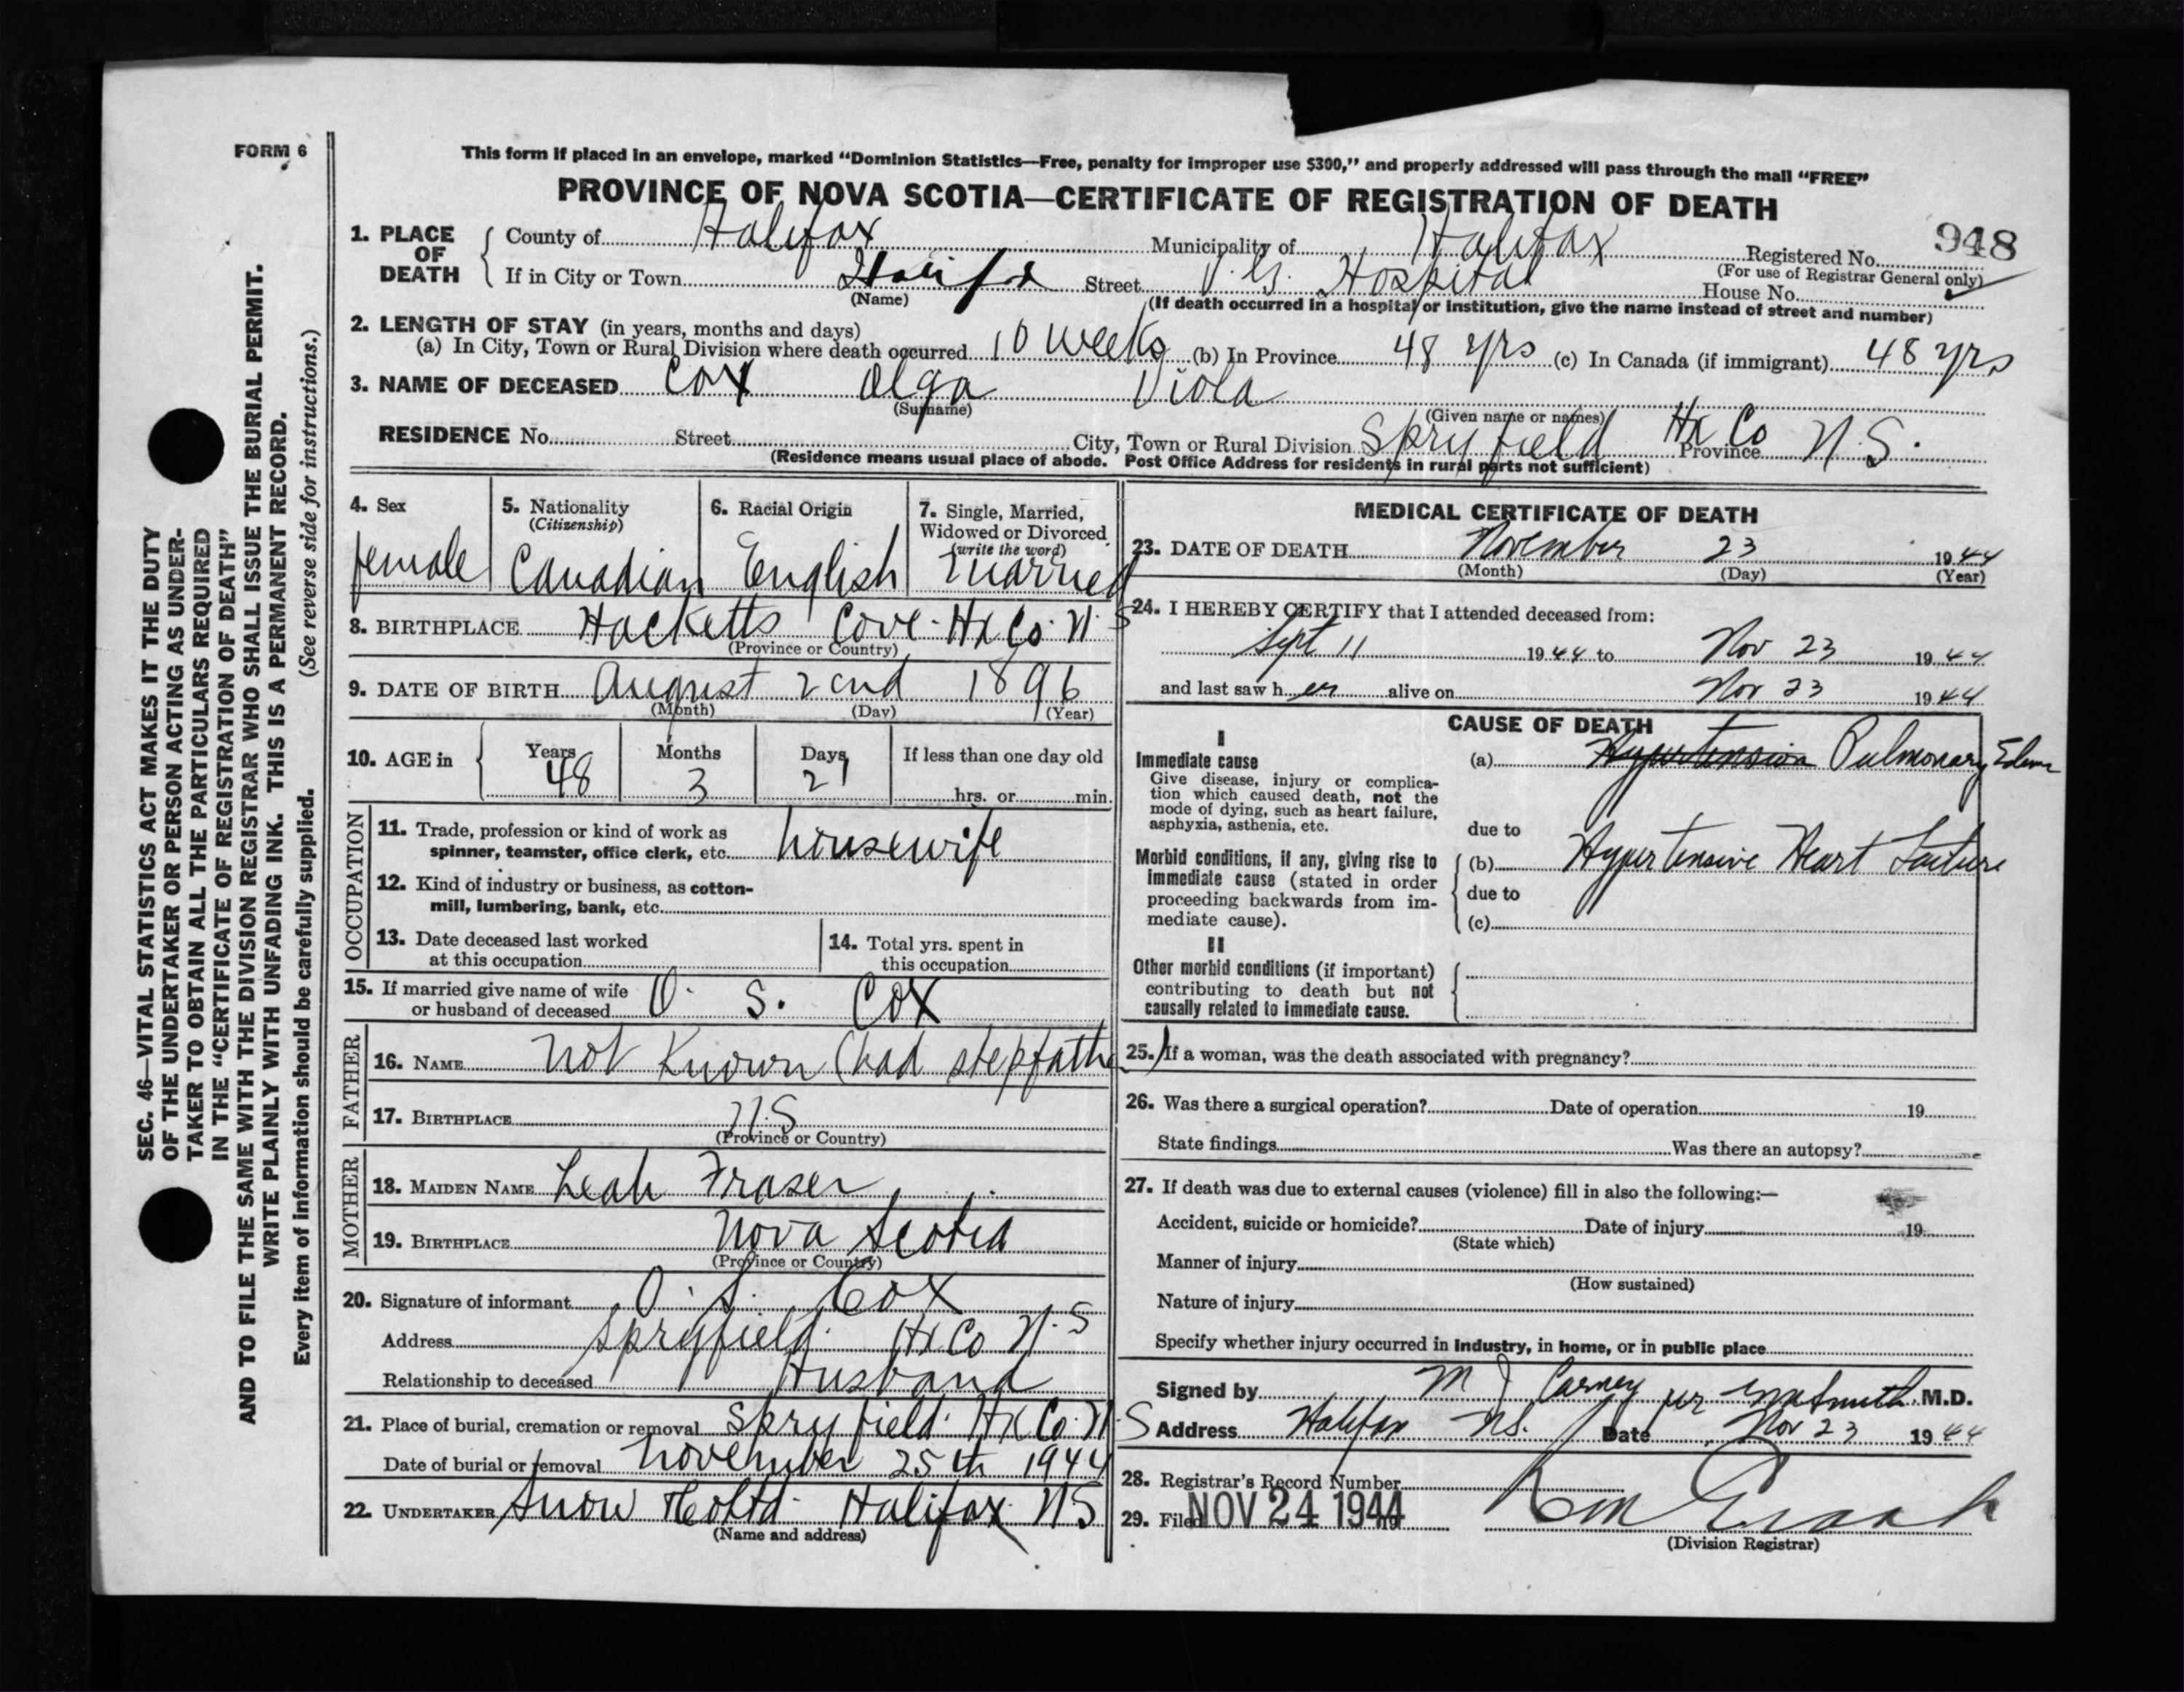 FORM 6
This form if placed in an envelope, marked "Dominion Statistics—Free, penalty for improper use $300," and properly addressed will pass through the mail "FREE"
PROVINCE OF NOVA SCOTIA—CERTIFICATE OF REGISTRATION OF DEATH
948
1. PLACE OF DEATH County of Halifax Municipality of Halifax Registered No.
(For use of Registrar General only)
If in City or Town Halifax Street V. G. Hospital House No.
(Name) (If death occurred in a hospital or institution, give the name instead of street and number)
2. LENGTH OF STAY (in years, months and days)
(a) In City, Town or Rural Division where death occurred 10 weeks (b) In Province 48 yrs (c) In Canada (if immigrant) 48 yrs
3. NAME OF DECEASED Cox Olga Viola
(Surname) (Given name or names)
RESIDENCE No. Street City, Town or Rural Division Spryfield Hx Co Province N.S.
(Residence means usual place of abode. Post Office Address for residents in rural parts not sufficient)
4. Sex 5. Nationality 6. Racial Origin 7. Single, Married,
(Citizenship) Widowed or Divorced
(write the word)
female Canadian English Married
8. BIRTHPLACE Hacketts Cove. Hx Co. N.S
(Province or Country)
9. DATE OF BIRTH August 22nd 1896
(Month) (Day) (Year)
10. AGE in Years Months Days If less than one day old
48 3 21 hrs. or min.
OCCUPATION
11. Trade, profession or kind of work as
spinner, teamster, office clerk, etc. housewife
12. Kind of industry or business, as cotton-
mill, lumbering, bank, etc.
13. Date deceased last worked
at this occupation
14. Total yrs. spent in
this occupation
15. If married give name of wife
or husband of deceased O. S. Cox
FATHER
16. NAME Not Known (had stepfather)
17. BIRTHPLACE N.S
(Province or Country)
MOTHER
18. MAIDEN NAME Leah Fraser
19. BIRTHPLACE Nova Scotia
(Province or Country)
20. Signature of informant O. S. Cox
Address Spryfield. Hx Co N.S
Relationship to deceased Husband
21. Place of burial, cremation or removal Spryfield. Hx Co. N.S
Date of burial or removal November 25th 1944
22. UNDERTAKER Snow & Co Ltd. Halifax. NS
(Name and address)
MEDICAL CERTIFICATE OF DEATH
23. DATE OF DEATH November 23 1944
(Month) (Day) (Year)
24. I HEREBY CERTIFY that I attended deceased from:
Sept 11 1944 to Nov 23 1944
and last saw her alive on Nov 23 1944
CAUSE OF DEATH
I
Immediate cause
Give disease, injury or complica-
tion which caused death, not the
mode of dying, such as heart failure,
asphyxia, asthenia, etc.
(a) Hypertension Pulmonary Edema
due to
Morbid conditions, if any, giving rise to
immediate cause (stated in order
proceeding backwards from im-
mediate cause).
(b) Hypertensive Heart Failure
due to
(c)
II
Other morbid conditions (if important)
contributing to death but not
causally related to immediate cause.
25. If a woman, was the death associated with pregnancy?
26. Was there a surgical operation? Date of operation 19
State findings Was there an autopsy?
27. If death was due to external causes (violence) fill in also the following:—
Accident, suicide or homicide? Date of injury 19
(State which)
Manner of injury
(How sustained)
Nature of injury
Specify whether injury occurred in industry, in home, or in public place
Signed by M J Carney per M.D.
Address Halifax NS. Date Nov 23 1944
28. Registrar's Record Number
29. Filed NOV 24 1944 19
(Division Registrar)
SEC. 46—VITAL STATISTICS ACT MAKES IT THE DUTY
OF THE UNDERTAKER OR PERSON ACTING AS UNDER-
TAKER TO OBTAIN ALL THE PARTICULARS REQUIRED
IN THE "CERTIFICATE OF REGISTRATION OF DEATH"
AND TO FILE THE SAME WITH THE DIVISION REGISTRAR WHO SHALL ISSUE THE BURIAL PERMIT.
WRITE PLAINLY WITH UNFADING INK. THIS IS A PERMANENT RECORD.
Every item of information should be carefully supplied. (See reverse side for instructions.)